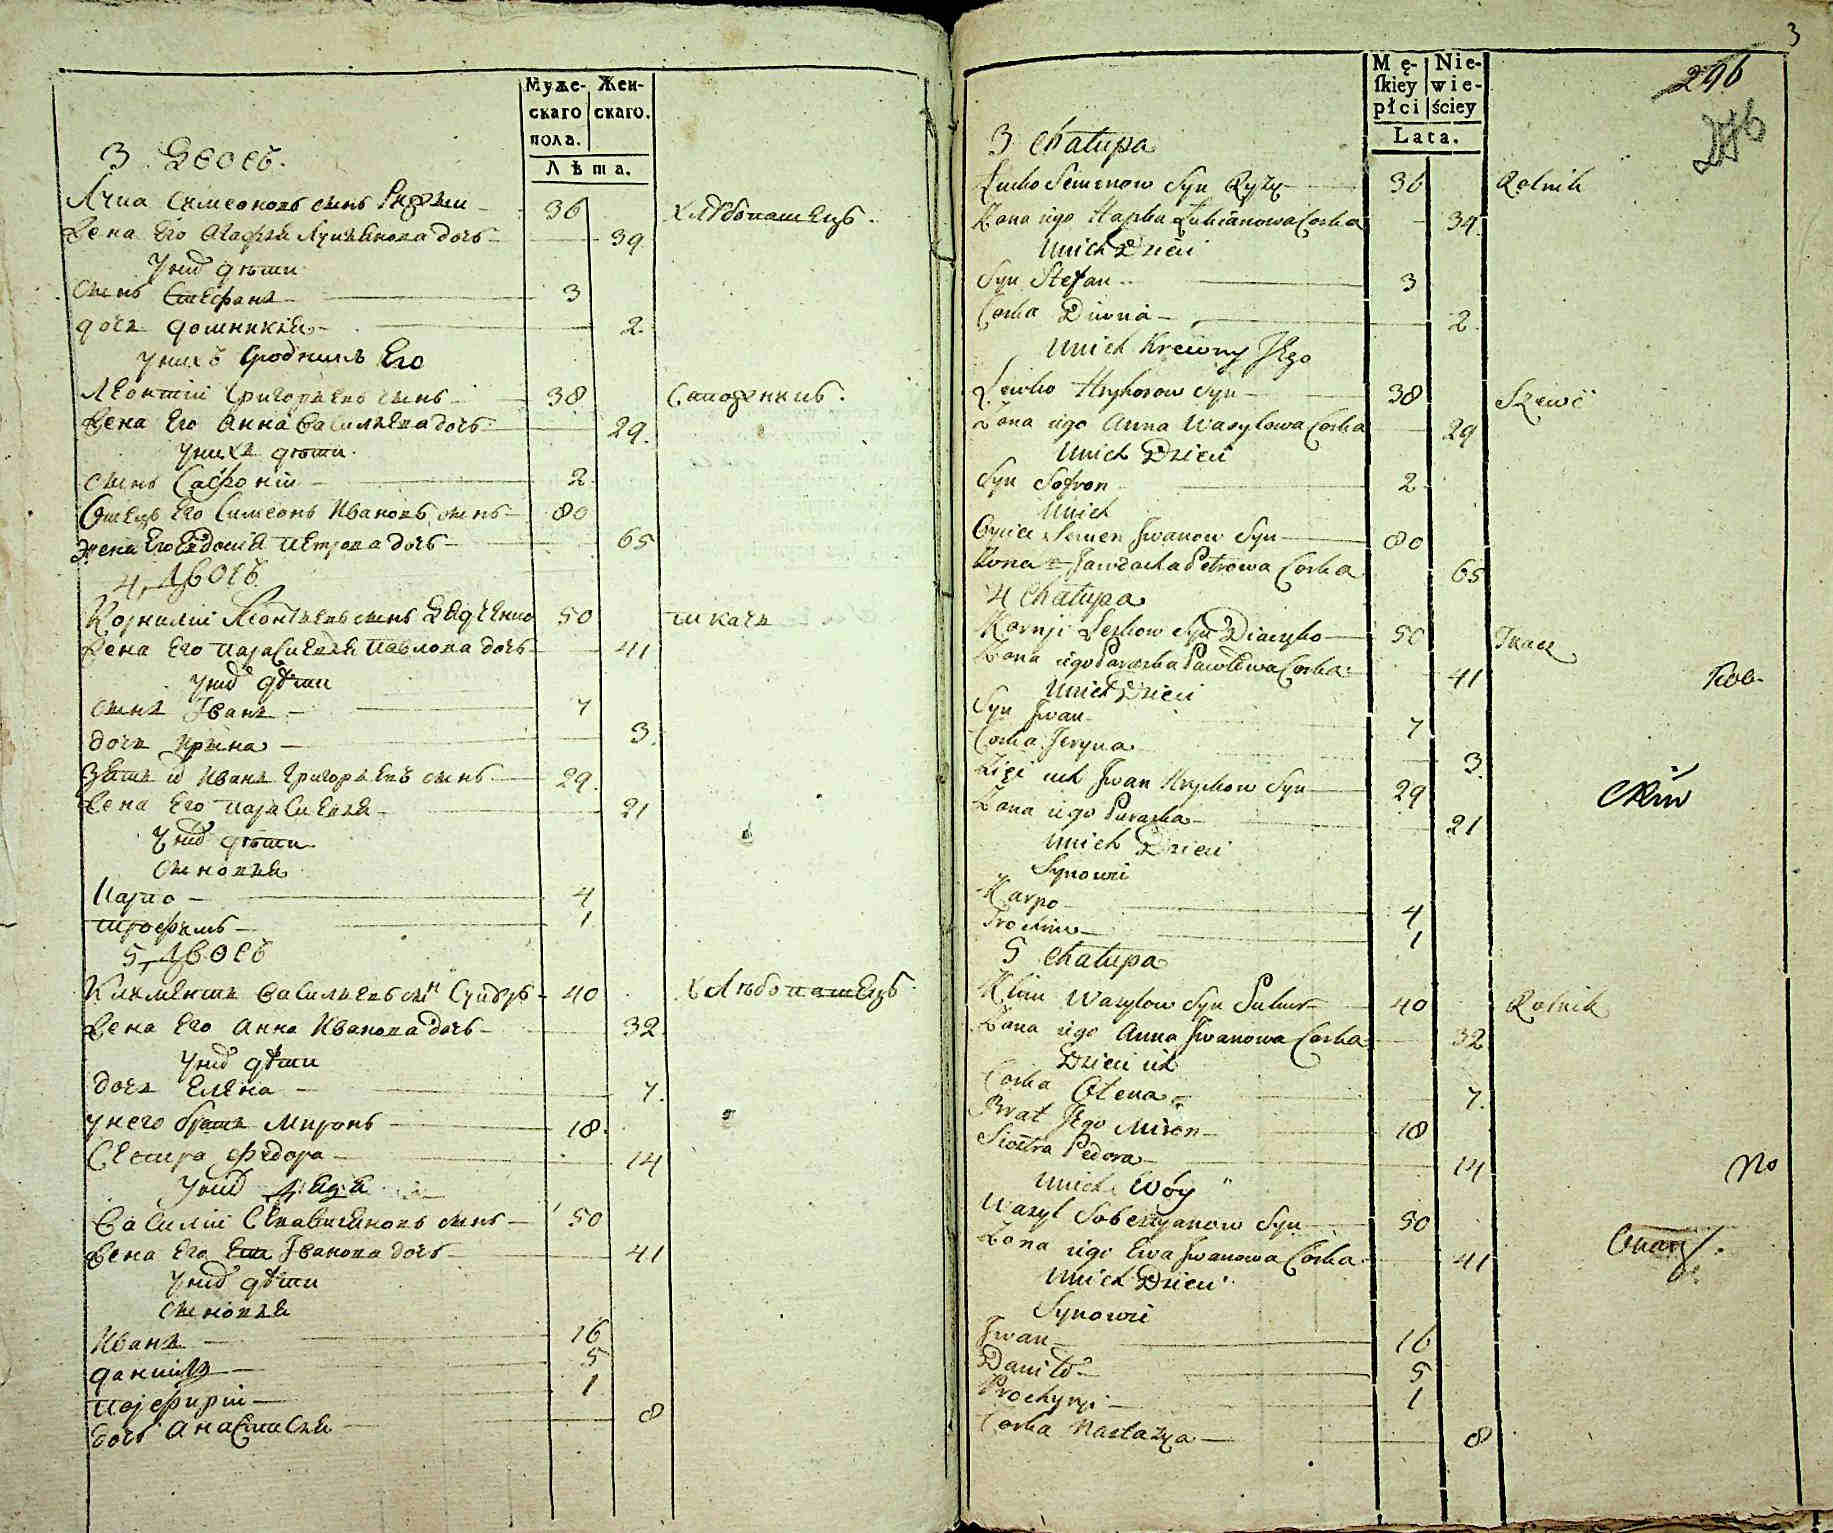 Муже- Жен-
скаго скаго.
пола.
Лѣта.
3 Дворъ.
Лука Симеоновъ сынъ Рыжии 36 хлѣбопашецъ.
Жена Его Агафия Лукиянова дочъ 39
У нихъ дѣти
Сынъ Стефанъ 3
дочь домникия 2.
У нихъ сродникъ Его
Леонтий Григорьевъ сынъ 38 Сапожникъ.
Жена Его Анна Василиева дочъ 29.
У нихъ дѣти.
Сынъ Сафроний 2
Отецъ Его Симеонъ Ивановъ сынъ 80
Жена Его Евдокия Петрова дочъ 65
4 Дворъ
Корнилий Леонтиевъ сынъ 50 ткачь
Жена Его Параскевия Павлова дочъ 41
У нихъ дѣти
Сынъ Іванъ 7
дочь Ирина 3.
Зять ихъ Иванъ Григориевъ сынъ 29.
Жена Его Параскевия 21
У нихъ дѣти
Сыновья
Карпо 4
Трофимъ 1
5 Дворъ
Климентъ Василиевъ сынъ 40 хлѣбопашецъ
Жена Его Анна Иванова дочъ 32.
У нихъ дѣти
дочь Елена 7.
У него братъ Миронъ 18.
Сестра Федора 14
У нихъ дядя
Василий Севастияновъ сынъ 50
Жена Его Ева Іванова дочъ 41
У нихъ дѣти
Сыновья
Иванъ 16
данило 5
порфирий 1
дочъ Анастасия 8
3
Mę- Nie-
skiey wie-
płci ściey
Lata.
296
3 Chałupa
Łucko Semenow Syn Ryży 36 Rolnik
Żona iego Hapka Łukianowa Corka 39.
Unich Dzieci
Syn Stefan 3
Corka Domna 2.
Unich Krewny Jego
Lewko Hryhorow Syn 38 Szewc
Żona iego Anna Wasylowa Corka 29
Unich Dzieci
Syn Sofron 2
Unich
Oyciec Semen Jwanow Syn 80
Żona Jawdocha Petrowa Corka 65
4 Chałupa
Kornji Leskow Syn Diaczko 50 Tkacz
Żona iego Paraska Pawłowa Corka 41
Unich Dzieci
Syn Jwan 7
Corka Jeryna 3.
Zięć ich Jwan Hryckow Syn 29
Żona iego Paraska 21
Unich Dzieci
Synowie
Karpo 4
Trochim 1
5 Chałupa
Klim Wasylow Syn 40 Rolnik
Żona iego Anna Jwanowa Corka 32
Dzieci ich
Corka Olena 7.
Brat Jego Miron 18
Siostra Fedora 14
No
Unich Wóy
Wasyl Sobestyanow Syn 50
Żona iego Ewa Jwanowa Corka 41
Unich Dzieci
Synowie
Jwan 16
Daniło 5
Prochyryi 1
Corka Nastazya 8